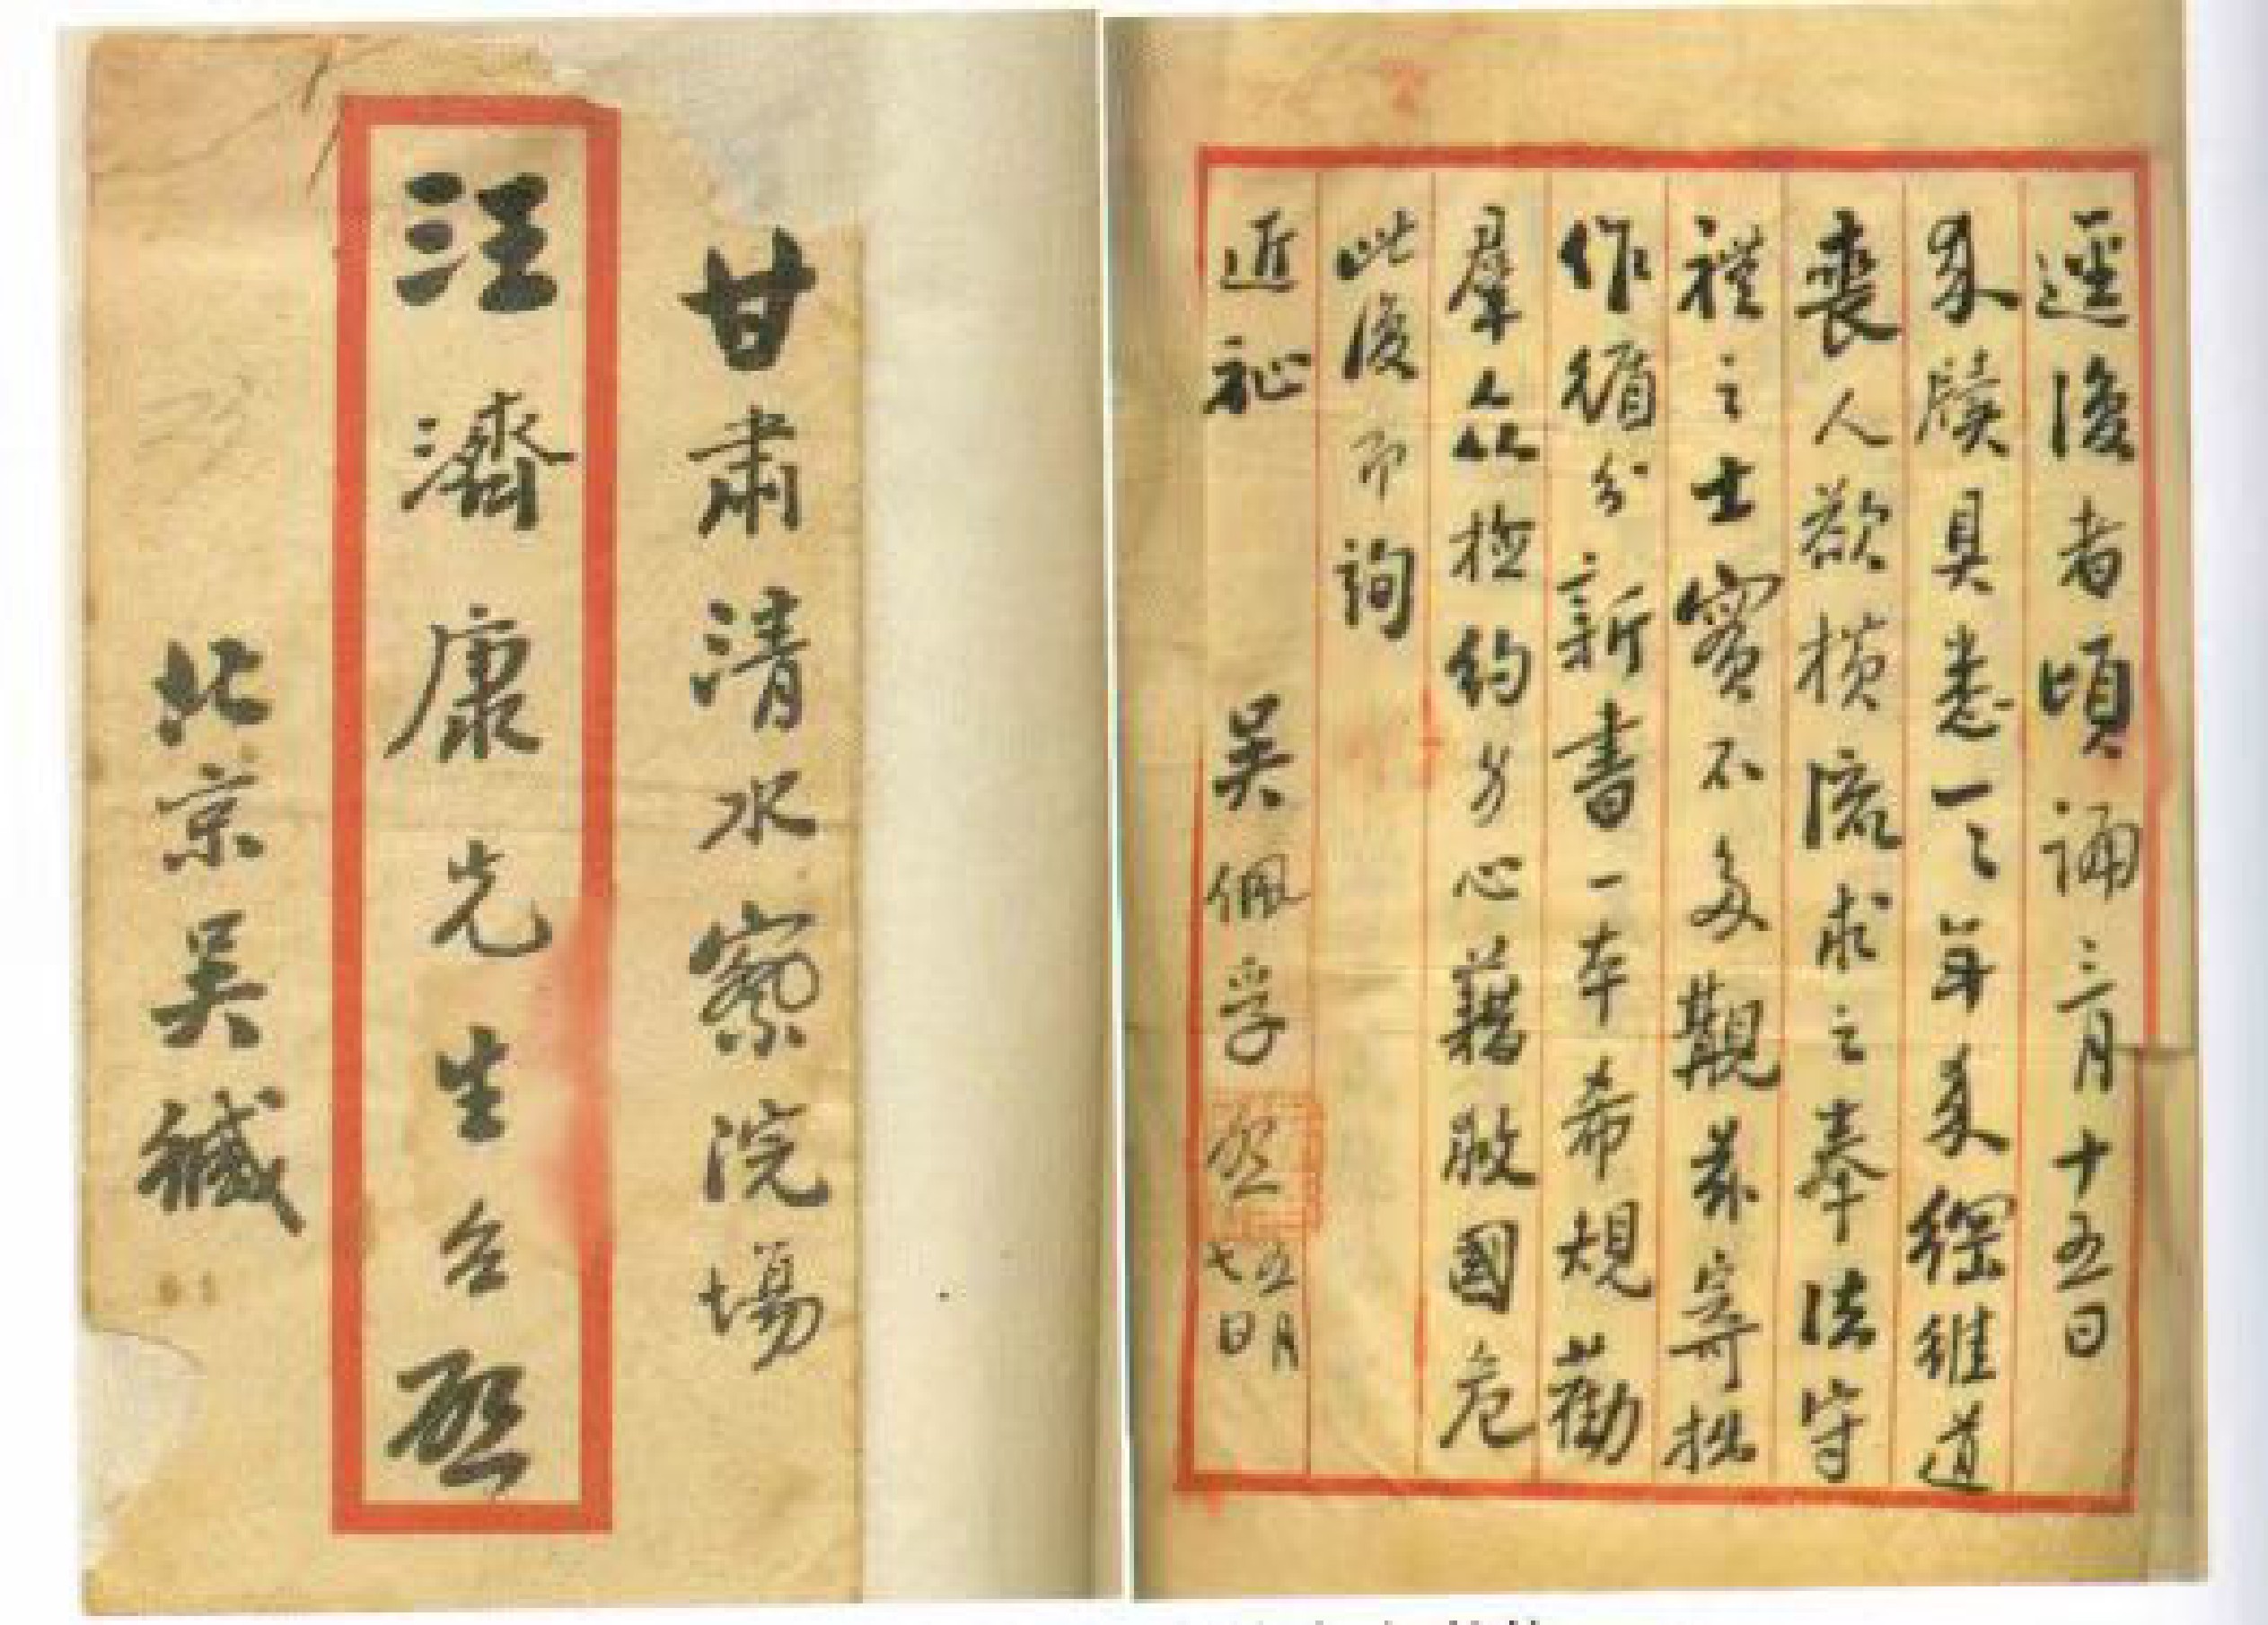 甘肅清水察院場
汪濟康先生台啟
北京吳緘
逕復者頃誦三月十五日
來牘具悉一一年來綱維道
喪人欲橫流求之奉法守
禮之士實不多觀茲寄拙
作循分新書一本希規勸
羣人众檢約身心藉救國危
此復即詢
近祉
吳佩孚啟
五月
七日